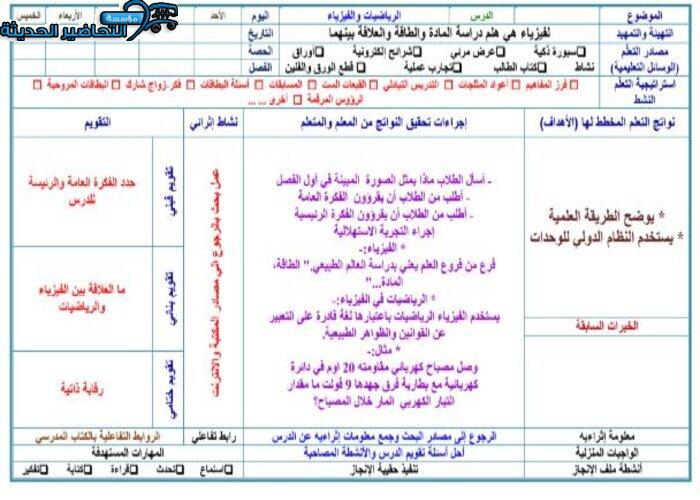 مؤسسة
التحاضير الحديثة
الموضوع
الدرس
الرياضيات والفيزياء
اليوم
الأحد
الأربعاء
الخميس
التهيئة والتمهيد
لفيزياء هي هلم دراسة المادة والطاقة والعلاقة بينهما
التاريخ
مصادر التعلم
(الوسائل التعليمية)
سبورة ذكية
عرض مرئي
شرائح إلكترونية
أوراق
الحصة
نشاط
كتاب الطالب
تجارب عملية
قطع الورق والفلين
الفصل
استراتيجية التعلم
النشط
فرز المفاهيم
أعواد المثلجات
التدريس التبادلي
القبعات الست
المسابقات
أسئلة البطاقات
فكر-زواج شارك
البطاقات المروحية
الرؤوس المرقمة
أخرى ... ...
نواتج التعلم المخطط لها (الأهداف)
إجراءات تحقيق النواتج من المعلم والمتعلم
نشاط إثرائي
التقويم
* يوضح الطريقة العلمية
* يستخدم النظام الدولي للوحدات
الخبرات السابقة
- أسأل الطلاب ماذا يمثل الصورة المبينة في أول الفصل
- أطلب من الطلاب أن يقرؤون الفكرة العامة
- أطلب من الطلاب أن يقرؤون الفكرة الرئيسية
إجراء التجربة الاستهلالية
* الفيزياء:-
فرع من فروع العلم يعني بدراسة العالم الطبيعي." الطاقة،
المادة..."
* الرياضيات في الفيزياء:-
يستخدم الفيزياء الرياضيات باعتبارها لغة قادرة على التعبير
عن القوانين والظواهر الطبيعية.
* مثال:-
وصل مصباح كهربائي مقاومته 20 اوم في دائرة
كهربائية مع بطارية فرق جهدها 9 فولت ما مقدار
التيار الكهربي المار خلال المصباح؟
عمل بحث بالرجوع الي مصادر المكتبة والانترنت
تقويم قبلي
حدد الفكرة العامة والرئيسة
للدرس
تقويم بنائي
ما العلاقة بين الفيزياء
والرياضيات
تقويم ختامي
رقابة ذاتية
معلومة إثراءيه
الرجوع إلى مصادر البحث وجمع معلومات إثراءيه عن الدرس
رابط تفاعلي
الروابط التفاعلية بالكتاب المدرسي
الواجبات المنزلية
أحل أسئلة تقويم الدرس والأنشطة المصاحبة
المهارات المستهدفة
أنشطة ملف الإنجاز
تنفيذ حقيبة الإنجاز
استماع
تحدث
قراءة
كتابة
تفكير